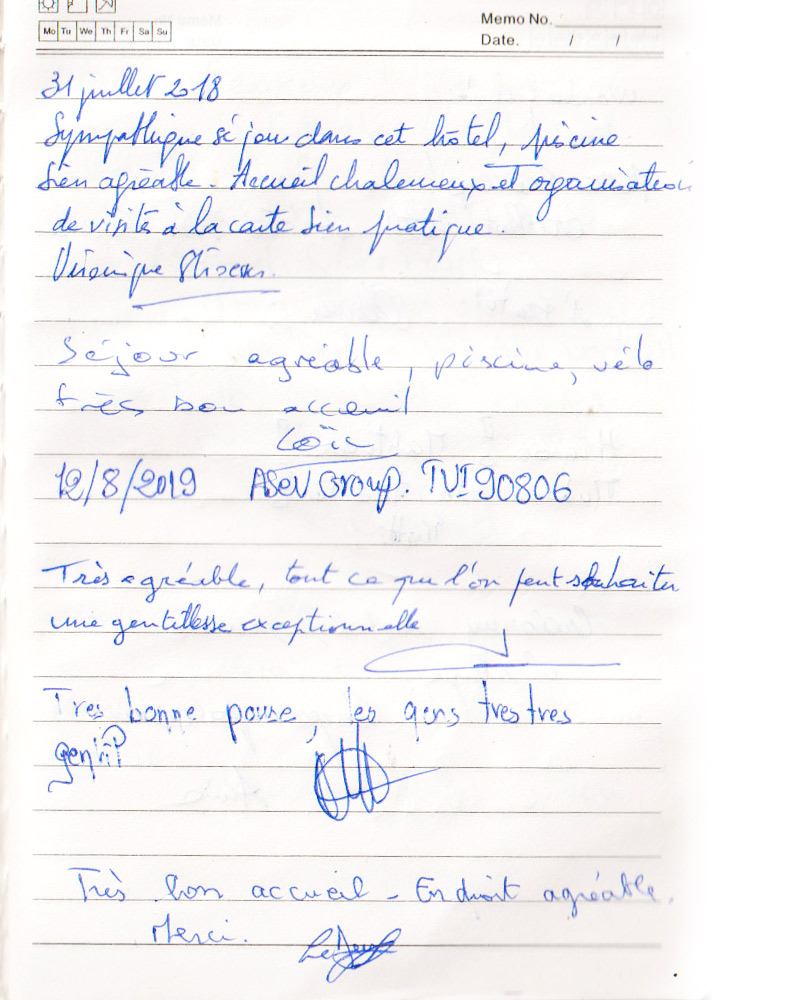 Mo Tu We Th Fr Sa Su
Memo No.
Date. / /
31 juillet 2018
Sympathique séjour dans cet hôtel, piscine
bien agréable. Accueil chaleureux et organisation
de visites à la carte bien pratique.
Véronique
Séjour agréable, piscine, vélo
très bon acceuil
Loïc
12/8/2019 ASEV Group. TVI 90806
Très agréable, tout ce que l'on peut souhaiter
une gentillesse exceptionnelle
Tres bonne pouse, les gens tres tres
gentil
Très bon accueil - Endroit agréable.
Merci.